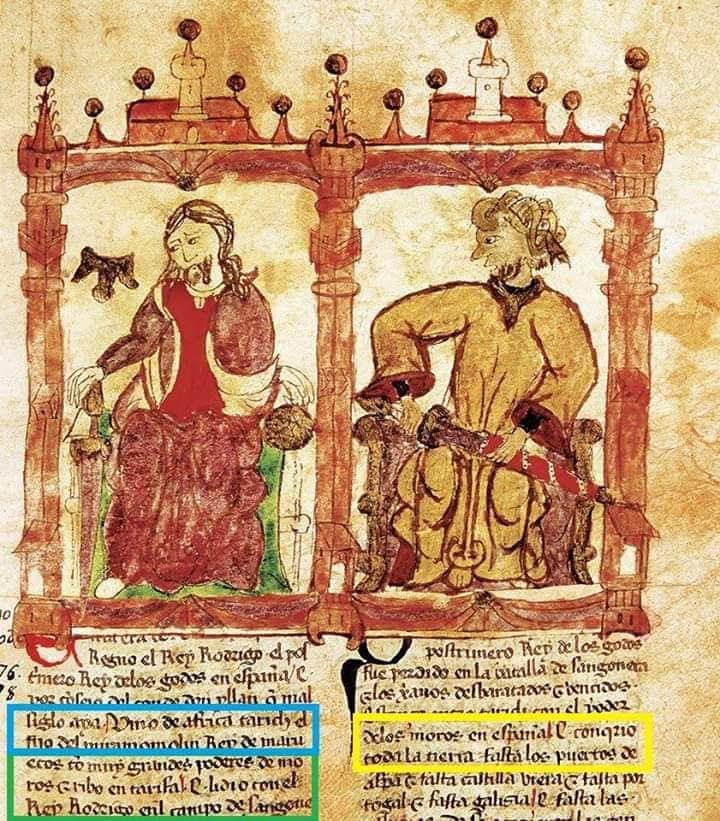 Regno el Rey Rodrigo. el pos
76.
t'mero Rey delos godos en españa / E.
8
por cōsejo del conde don yllan q̄ mal
siglo aya / Vino de africa tarich el
fijo del miramomolin Rey de marru
ecos cō muy grandes poderes de mo
ros & ribo en tarifa / E. lidio con el
Rey Rodrigo enl campo de sangone
postrimero Rey de los godos
fue perdido en la batalla de sangonera
& los xanos desbaratados & vencidos
con el poder
delos moros en españa / E conqrio
toda la tierra fasta los puertos de
aspa & fasta castilla vieja & fasta por
togal & fasta galisia / E fasta las